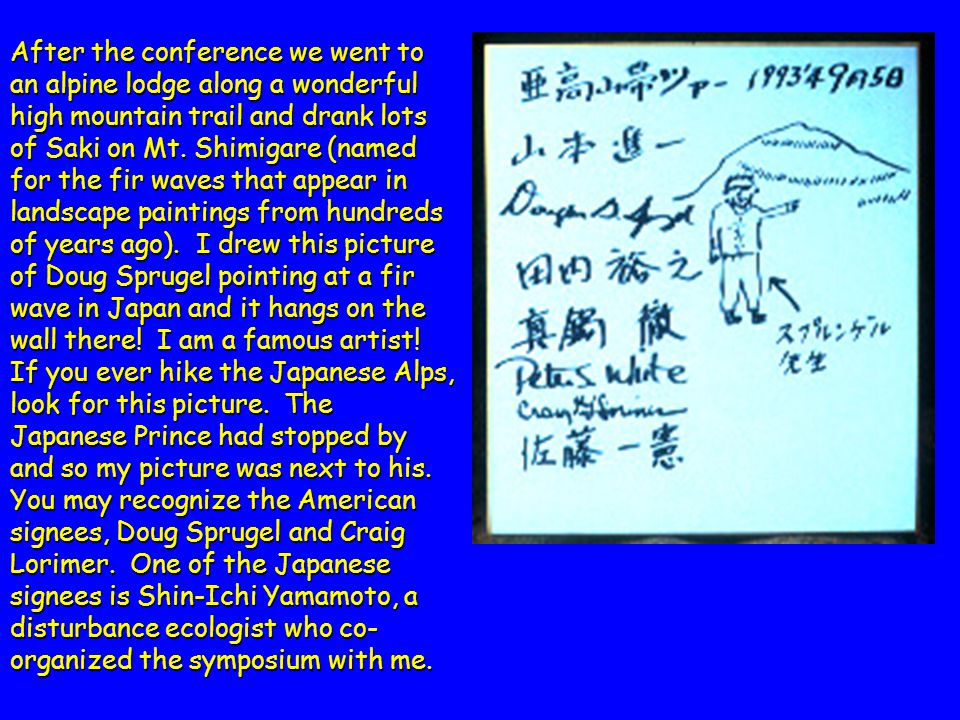 After the conference we went to
an alpine lodge along a wonderful
high mountain trail and drank lots
of Saki on Mt. Shimigare (named
for the fir waves that appear in
landscape paintings from hundreds
of years ago).  I drew this picture
of Doug Sprugel pointing at a fir
wave in Japan and it hangs on the
wall there!  I am a famous artist!
If you ever hike the Japanese Alps,
look for this picture.  The
Japanese Prince had stopped by
and so my picture was next to his.
You may recognize the American
signees, Doug Sprugel and Craig
Lorimer.  One of the Japanese
signees is Shin-Ichi Yamamoto, a
disturbance ecologist who co-
organized the symposium with me.
亜高山帯ツアー 1993年9月5日
山本進一
Douglas G. Sprugel
田内裕之
真鍋 徹
Peter S. White
Craig G. Lorimer
佐藤一憲
スプルンゲル
先生